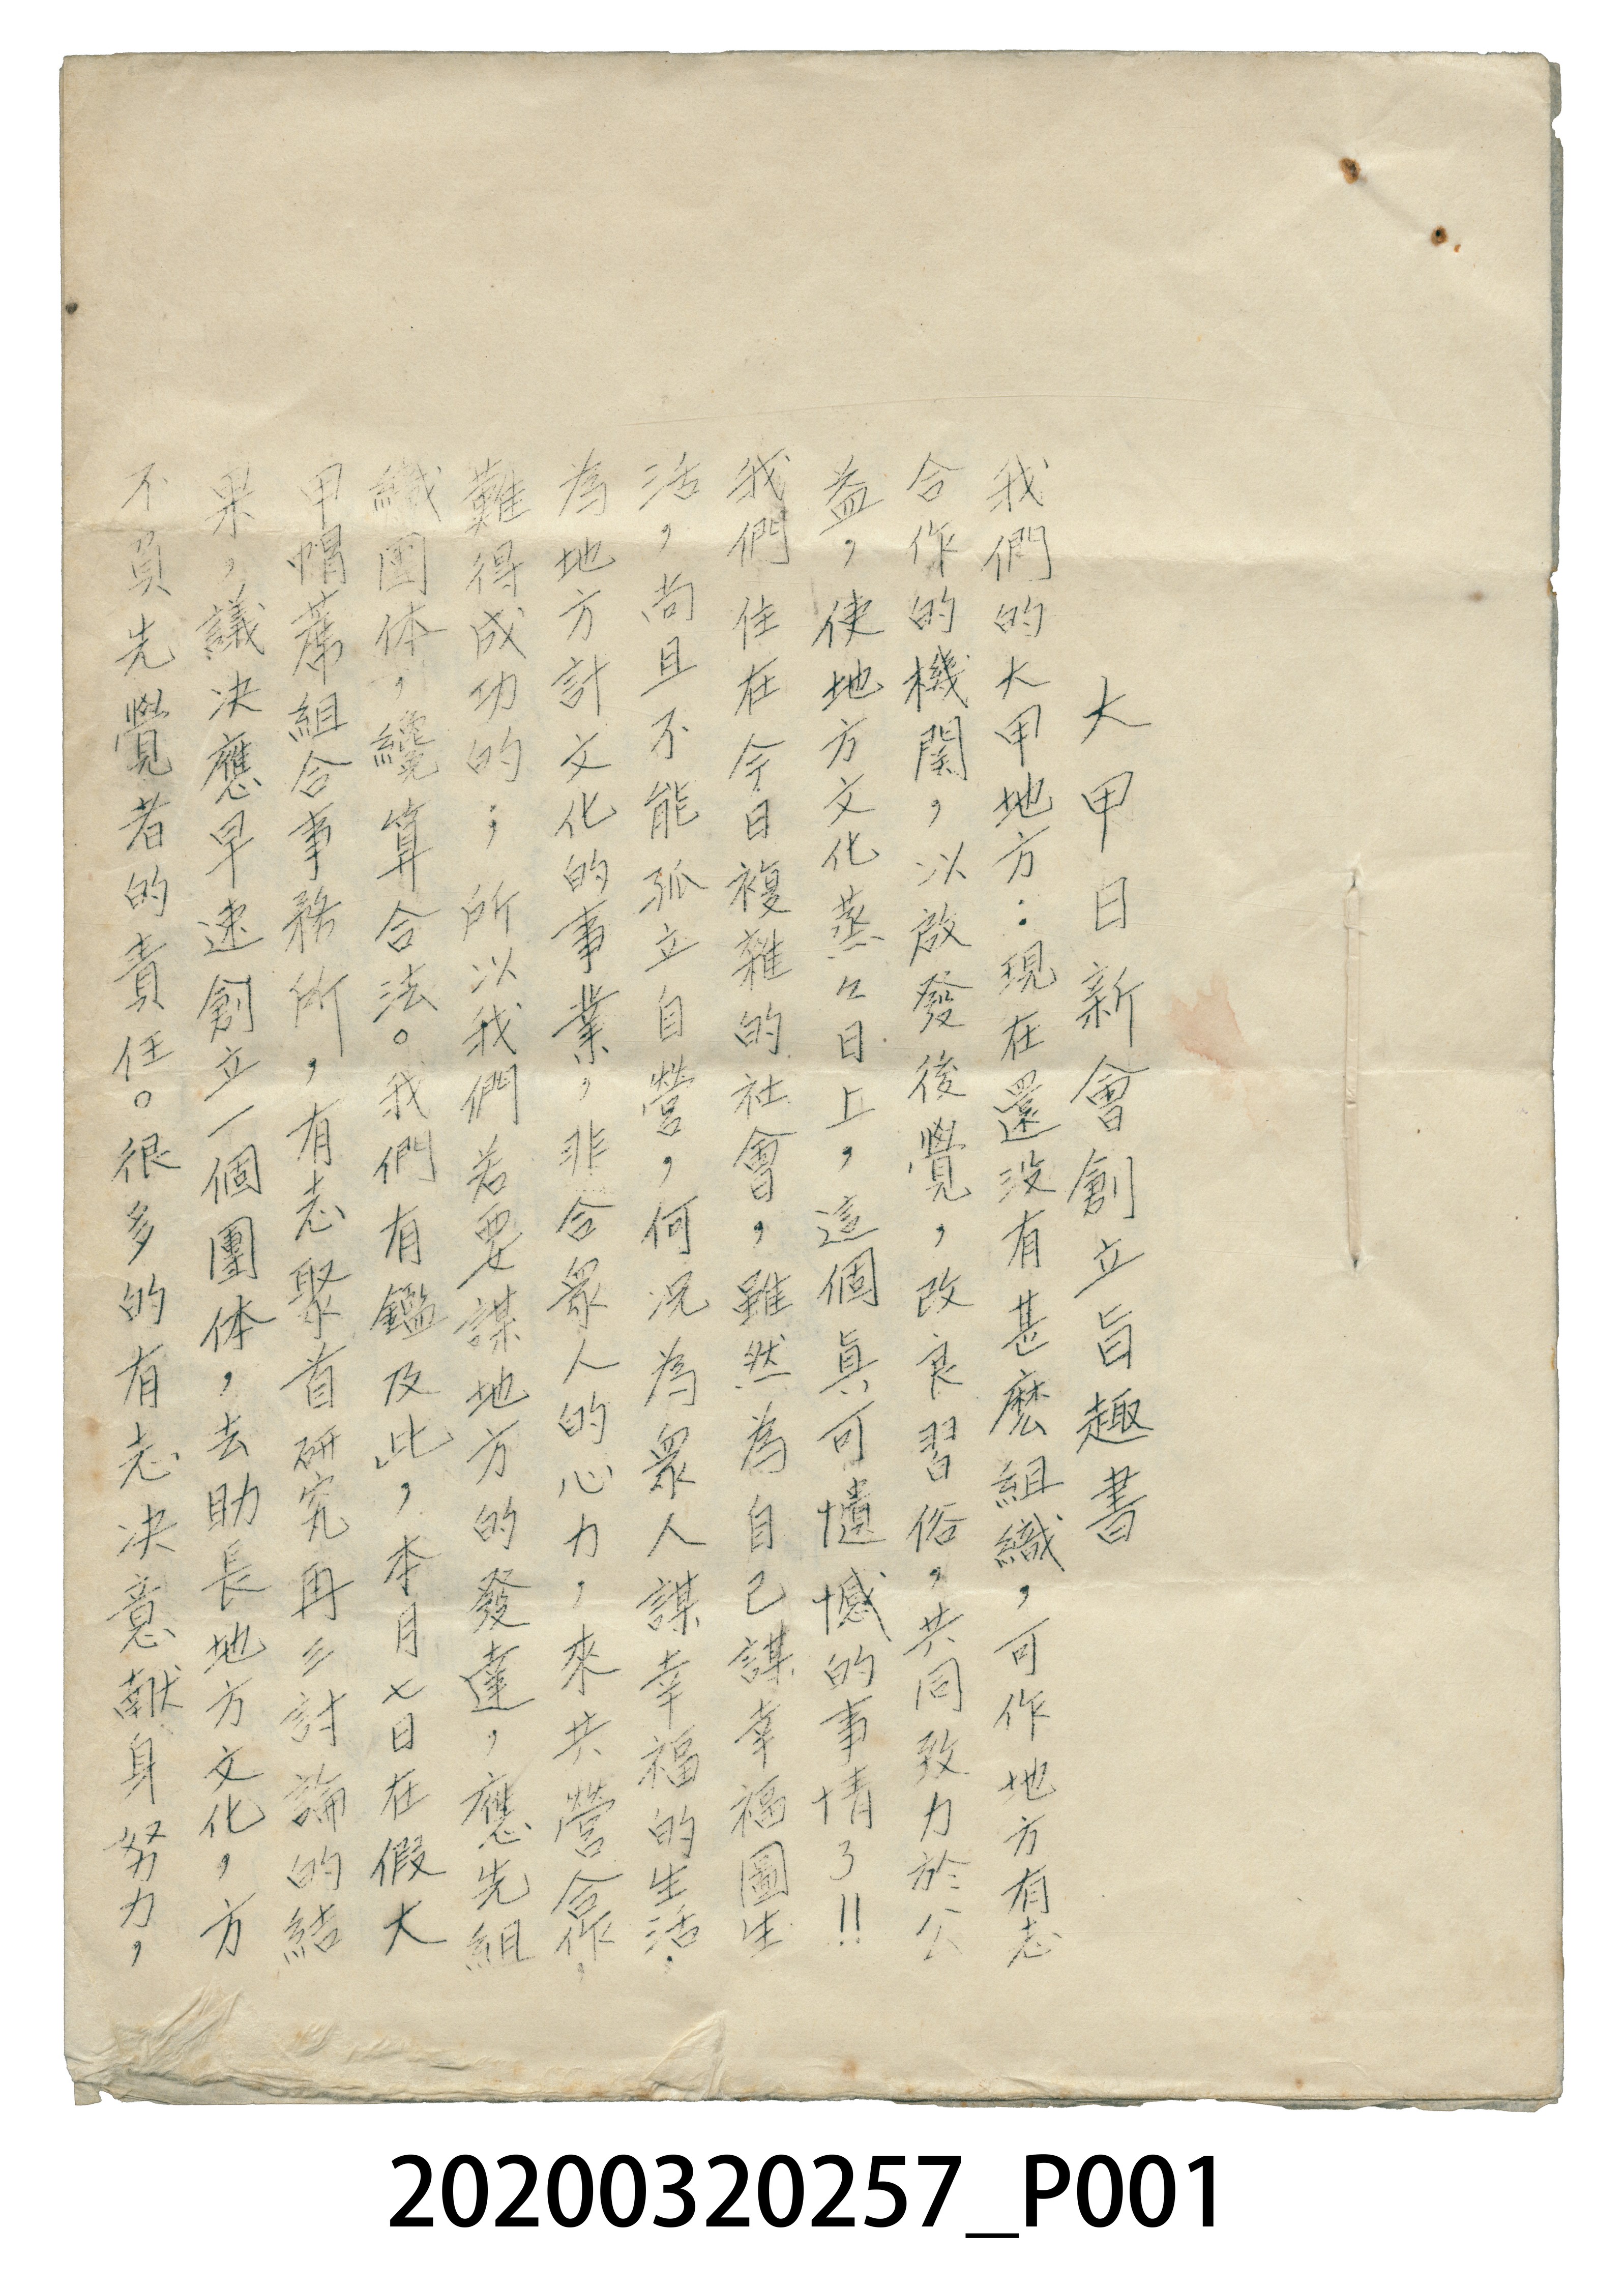 大甲日新會創立旨趣書
我們的大甲地方:現在還没有甚麽組織,可作地方有志
合作的機関,以啟發後覺,改良習俗,共同致力於公
益,使地方文化蒸々日上,這個真可憾的事情了!!
我們住在今日複雜的社會,雖然為自己謀幸福圖生
活,尚且不能孤立自營,何况為衆人謀幸福的生活.
為地方計文化的事業,非合衆人的心力,來共營合作,
難得成功的;所以我們若要謀地方的發達,應先組
織團体,纔算合法。我們有鑑及此,本月七日在假大
甲帽蓆組合事務所,有志聚首研究再三討論的結
果,議决應早速創立一個團体,去助長地方文化,方
不負先覺者的責任。很多的有志决意献身努力,
20200320257_P001